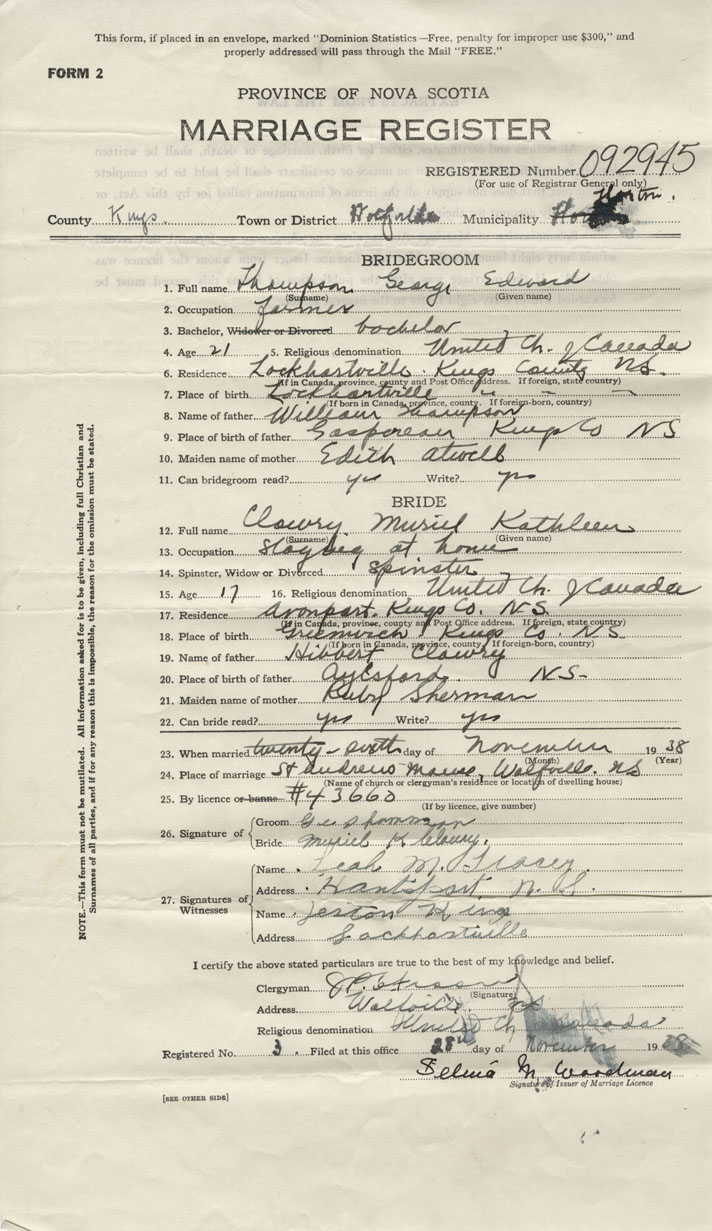 This form, if placed in an envelope, marked "Dominion Statistics—Free, penalty for improper use $300," and
properly addressed will pass through the Mail "FREE."
FORM 2
PROVINCE OF NOVA SCOTIA
MARRIAGE REGISTER
REGISTERED Number 092945
(For use of Registrar General only)
County Kings. Town or District Wolfville Municipality Horton.
BRIDEGROOM
1. Full name Thompson George Edward
(Surname) (Given name)
2. Occupation farmer
3. Bachelor, Widower or Divorced bachelor
4. Age 21 5. Religious denomination United Ch. of Canada
6. Residence Lockhartville Kings County NS.
(If in Canada, province, county and Post Office address. If foreign, state country)
7. Place of birth Lockhartville " " "
(If born in Canada, province, county. If foreign-born, country)
8. Name of father William Thompson
9. Place of birth of father Gaspereau Kings Co NS
10. Maiden name of mother Edith Atwell
11. Can bridegroom read? yes Write? yes
BRIDE
12. Full name Clowry Muriel Kathleen
(Surname) (Given name)
13. Occupation staying at home
14. Spinster, Widow or Divorced spinster
15. Age 17 16. Religious denomination United Ch. of Canada
17. Residence Avonport. Kings Co. N.S
(If in Canada, province, county and Post Office address. If foreign, state country)
18. Place of birth Greenwich Kings Co. NS
(If born in Canada, province, county. If foreign-born, country)
19. Name of father Hibbert Clowry
20. Place of birth of father Aylsford. NS-
21. Maiden name of mother Ruby Sherman
22. Can bride read? yes Write? yes
23. When married twenty-sixth day of November 1938
(Month) (Year)
24. Place of marriage St Andrews Manse, Wolfville. NS
(Name of church or clergyman's residence or location of dwelling house)
25. By licence or banns #43660
(If by licence, give number)
26. Signature of Groom Geo Thompson
Bride Muriel K Clowry.
27. Signatures of Witnesses
Name Leah M. Tracey.
Address Hantsport N.S.
Name King
Address Lockhartville
I certify the above stated particulars are true to the best of my knowledge and belief.
Clergyman
(Signature)
Address Wolfville. NS
Religious denomination United Ch. of Canada
Registered No. 3. Filed at this office 28th day of November 1938
Selma M. Woodman
Signature of Issuer of Marriage Licence
[SEE OTHER SIDE]
NOTE.—This form must not be mutilated. All information asked for is to be given, including full Christian and
Surnames of all parties, and if for any reason this is impossible, the reason for the omission must be stated.